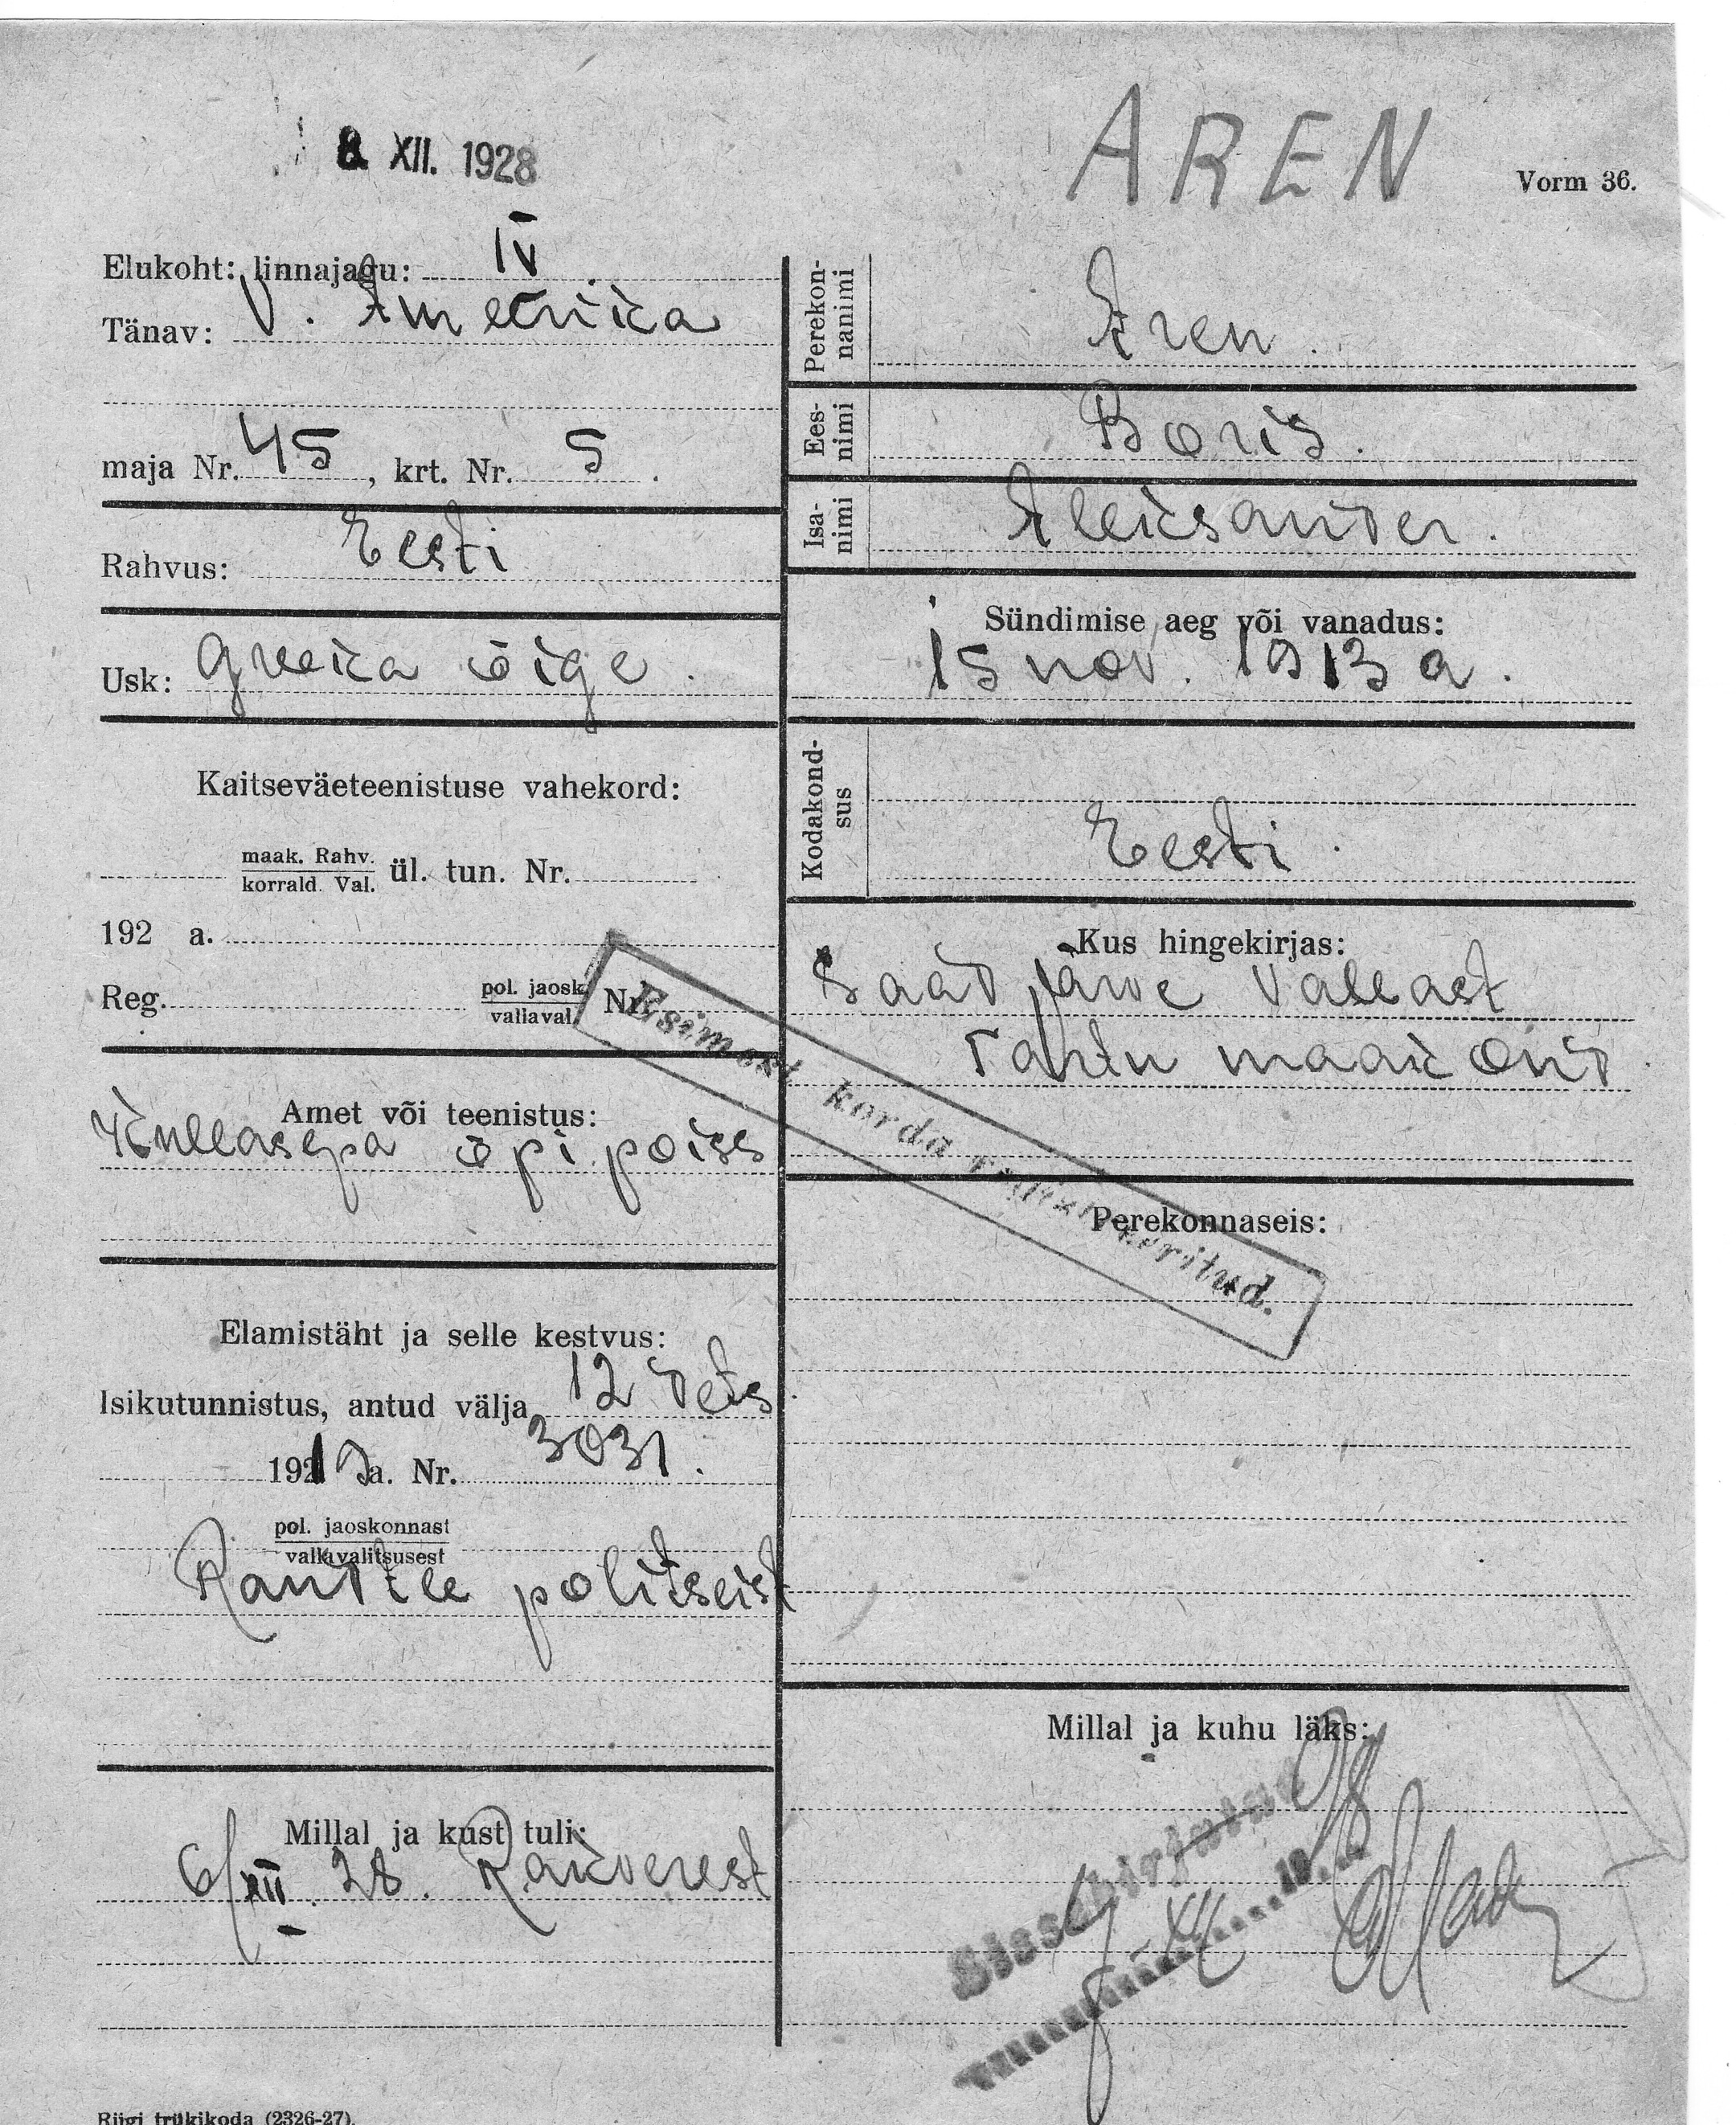 8 XII. 1928
AREN
Vorm 36.
Elukoht: linnajagu: IV
Tänav: V. Ameerika
maja Nr. 45, krt. Nr. 5.
Rahvus: Eesti
Usk: Greeka õige.
Kaitseväeteenistuse vahekord:
maak. Rahv.
korrald. Val. ül. tun. Nr.
192 a.
Reg. pol. jaosk. Nr.
vallaval.
Amet või teenistus:
Kullasepa õpi poiss
Elamistäht ja selle kestvus:
Isikutunnistus, antud välja 12 dets
192 a. Nr. 3031.
pol. jaoskonnast
vallavalitsusest
Raudtee politseist
Millal ja kust tuli:
6/XII. 28. Rakverest
Riigi trükikoda (2326-27).
Perekon-
nanimi
Aren.
Ees-
nimi
Boris.
Isa-
nimi
Aleksander.
Sündimise aeg või vanadus:
15 nov. 1913 a.
Kodakond-
sus
Eesti.
Kus hingekirjas:
Saadjärve vallast
Tartu maakond
Esimest korda registreeritud.
Perekonnaseis:
Millal ja kuhu läks:
Sissekirjutatud